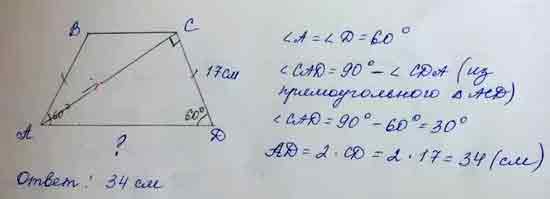 B
C
17см
60°
60°
A
D
?
Ответ: 34 см
∠A = ∠D = 60°
∠CAD = 90° - ∠CDA (из
прямоугольного Δ ACD)
∠CAD = 90° - 60° = 30°
AD = 2 · CD = 2 · 17 = 34 (см)